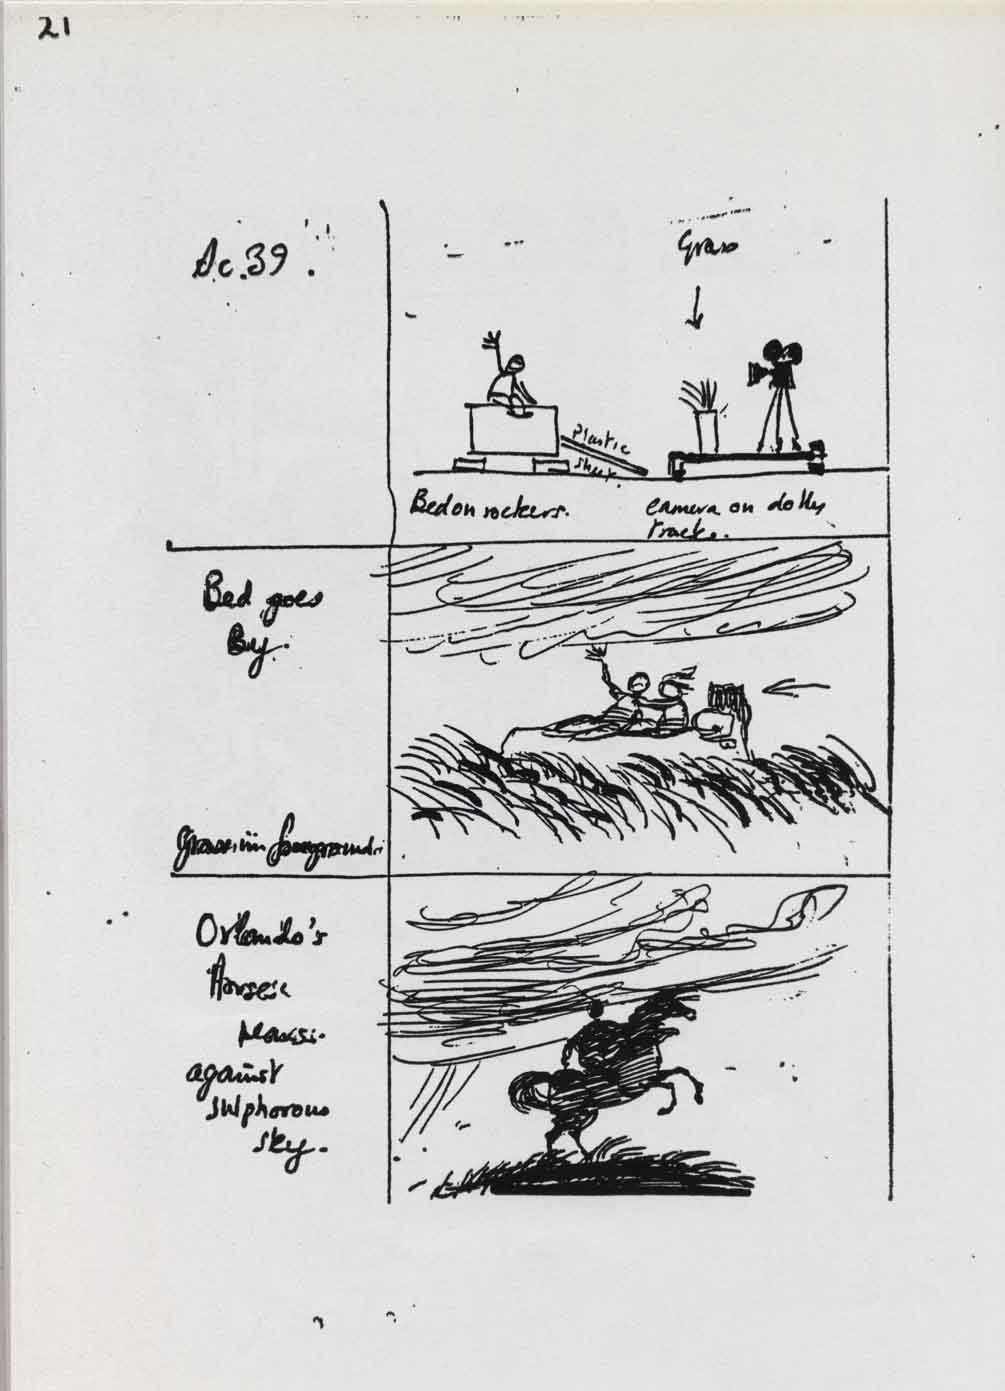 21
Sc.39.
Grass
Plastic
sheet.
Bed on rockers.
camera on dolly
track.
Bed goes
By.
Grass in foreground.
Orlando's
Horse
against
sulphorous
sky.